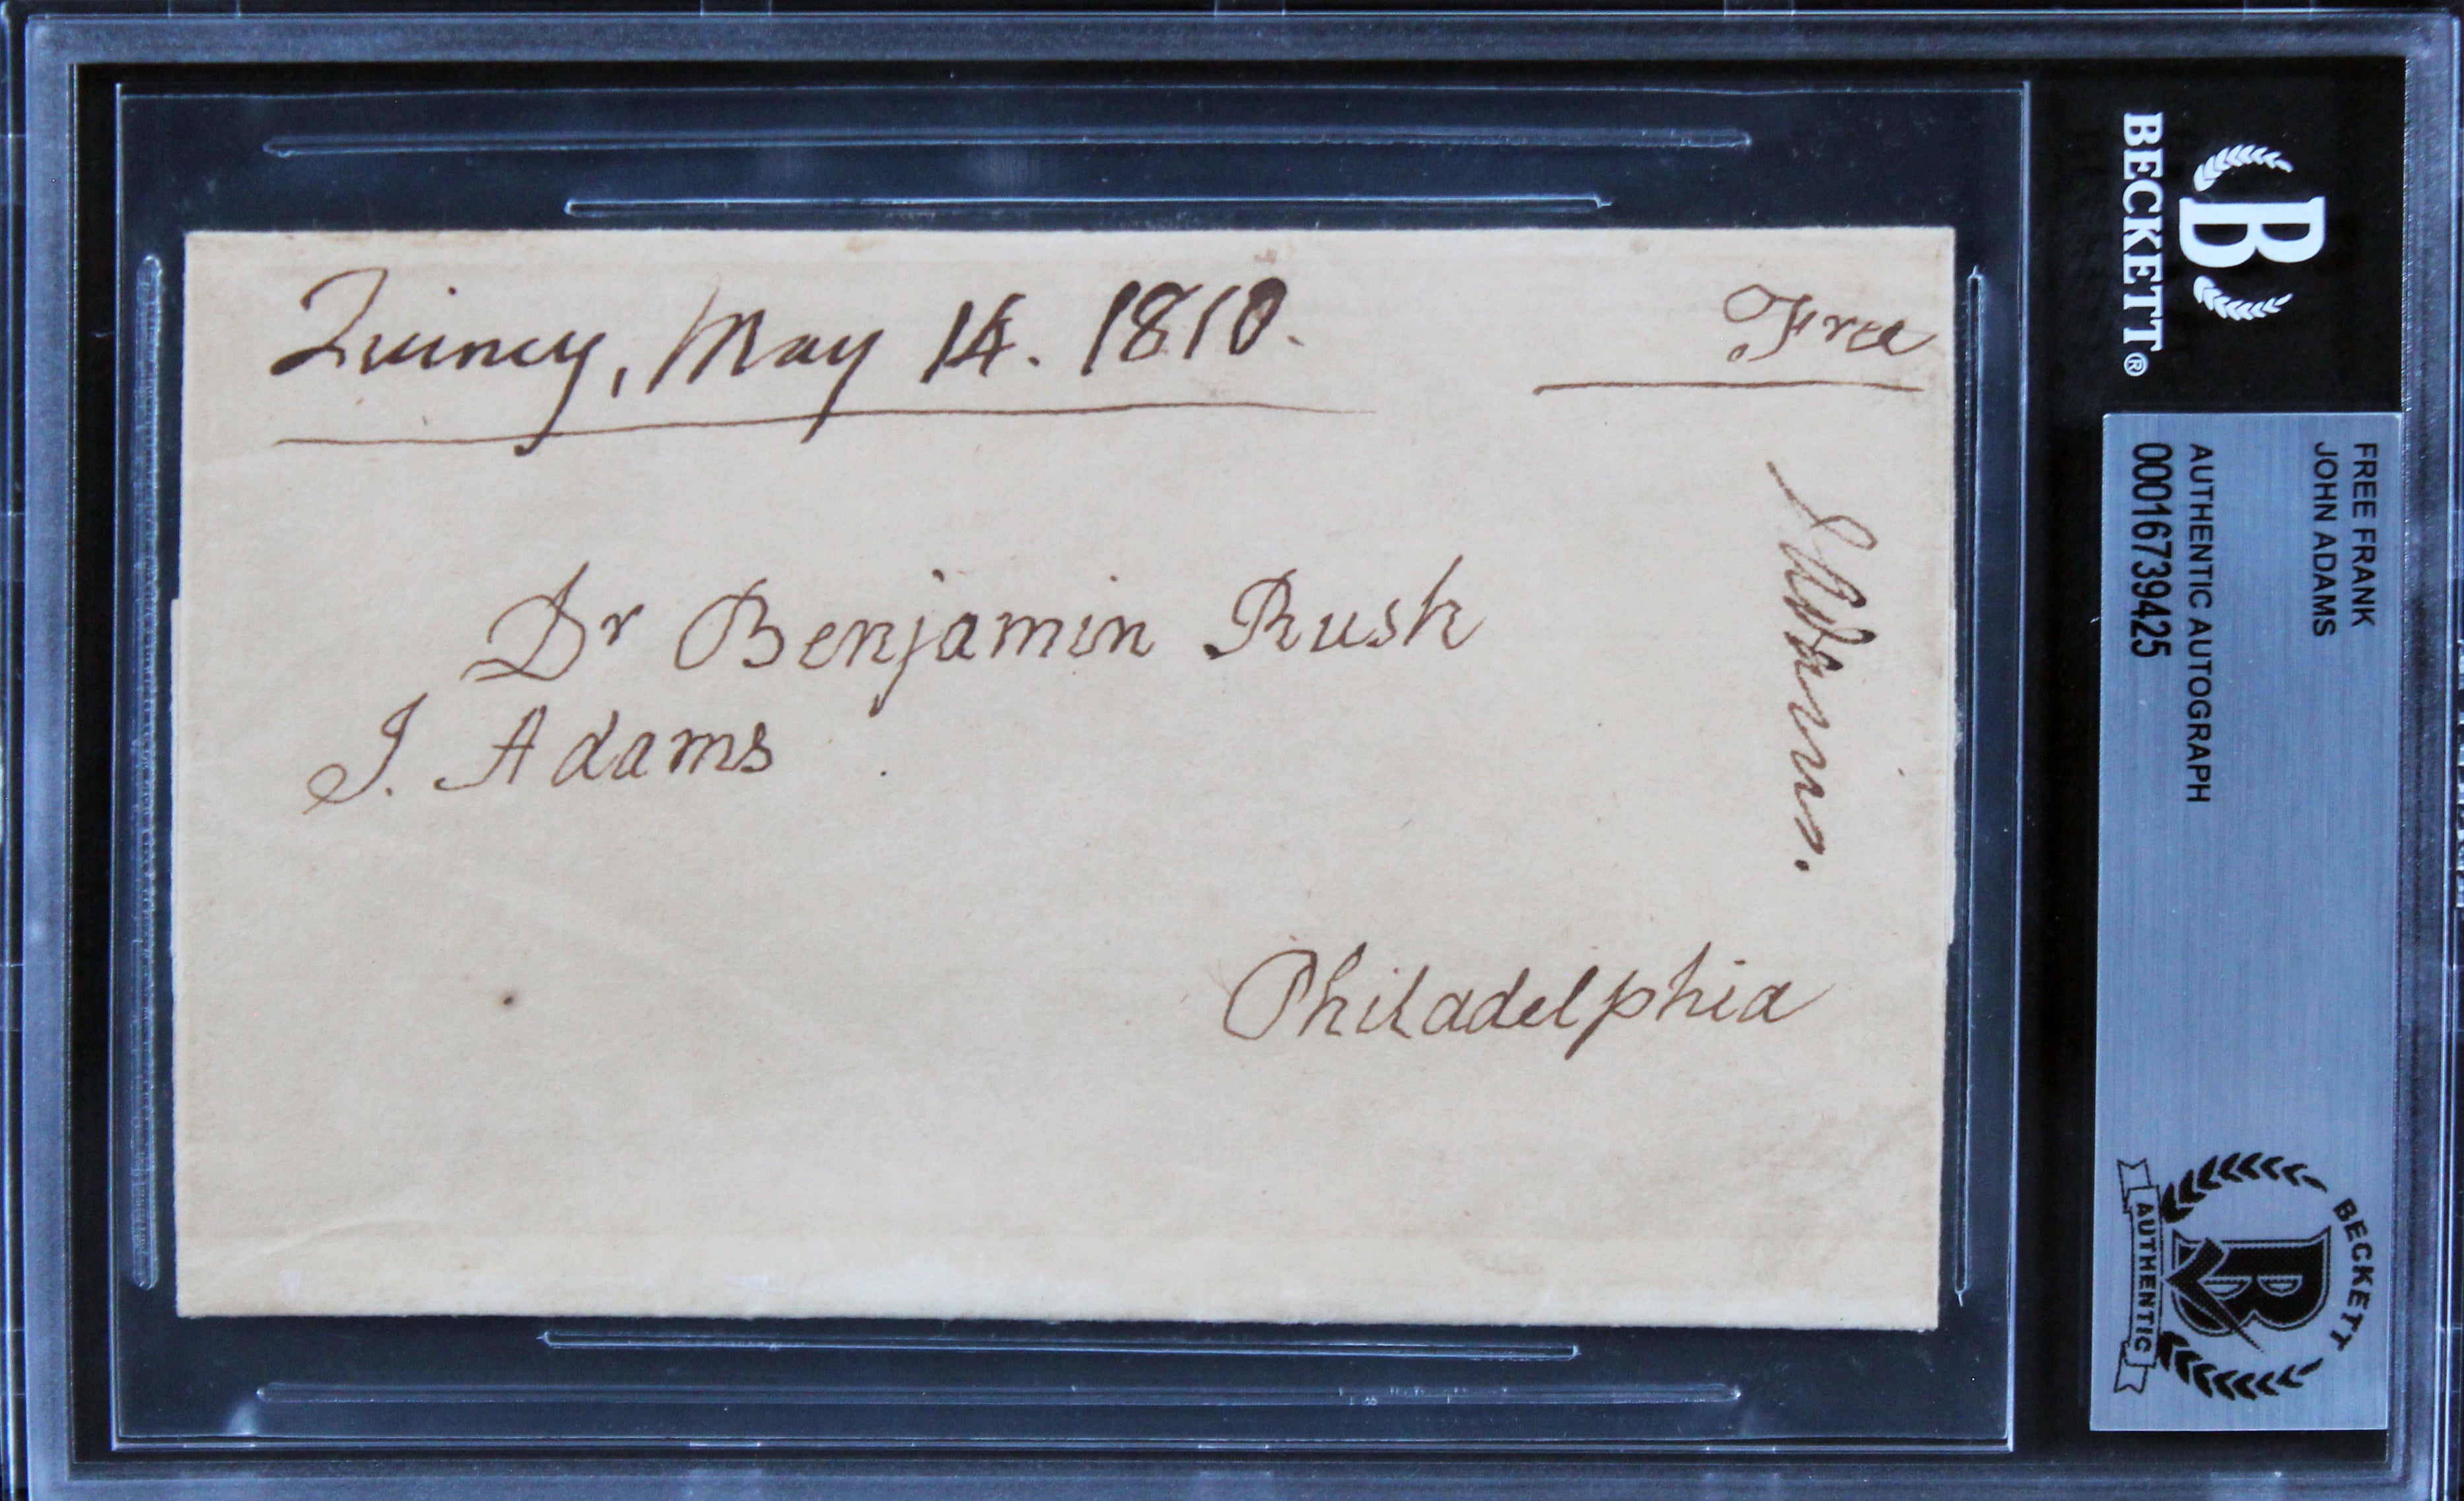 Quincy, May 14. 1810.
Free
Dr Benjamin Rush
J. Adams
Philadelphia
B
BECKETT®
FREE FRANK
JOHN ADAMS
AUTHENTIC AUTOGRAPH
00016739425
BECKETT
B
AUTHENTIC